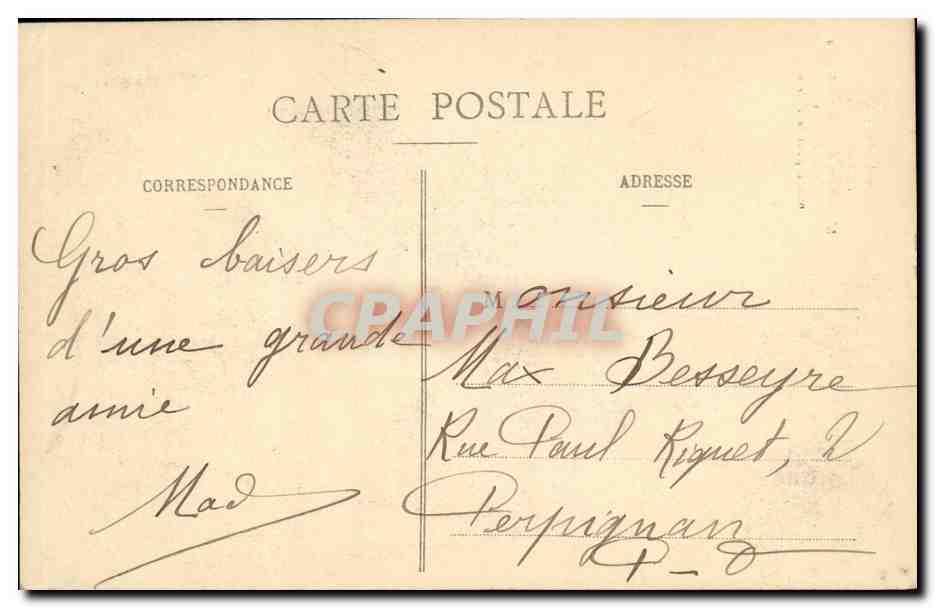 CARTE POSTALE
CORRESPONDANCE
Gros baisers
d'une grande
amie
Mad
ADRESSE
Monsieur
Max Besseyre
Rue Paul Riquet, 2
Perpignan
P-O
CPAPHIL